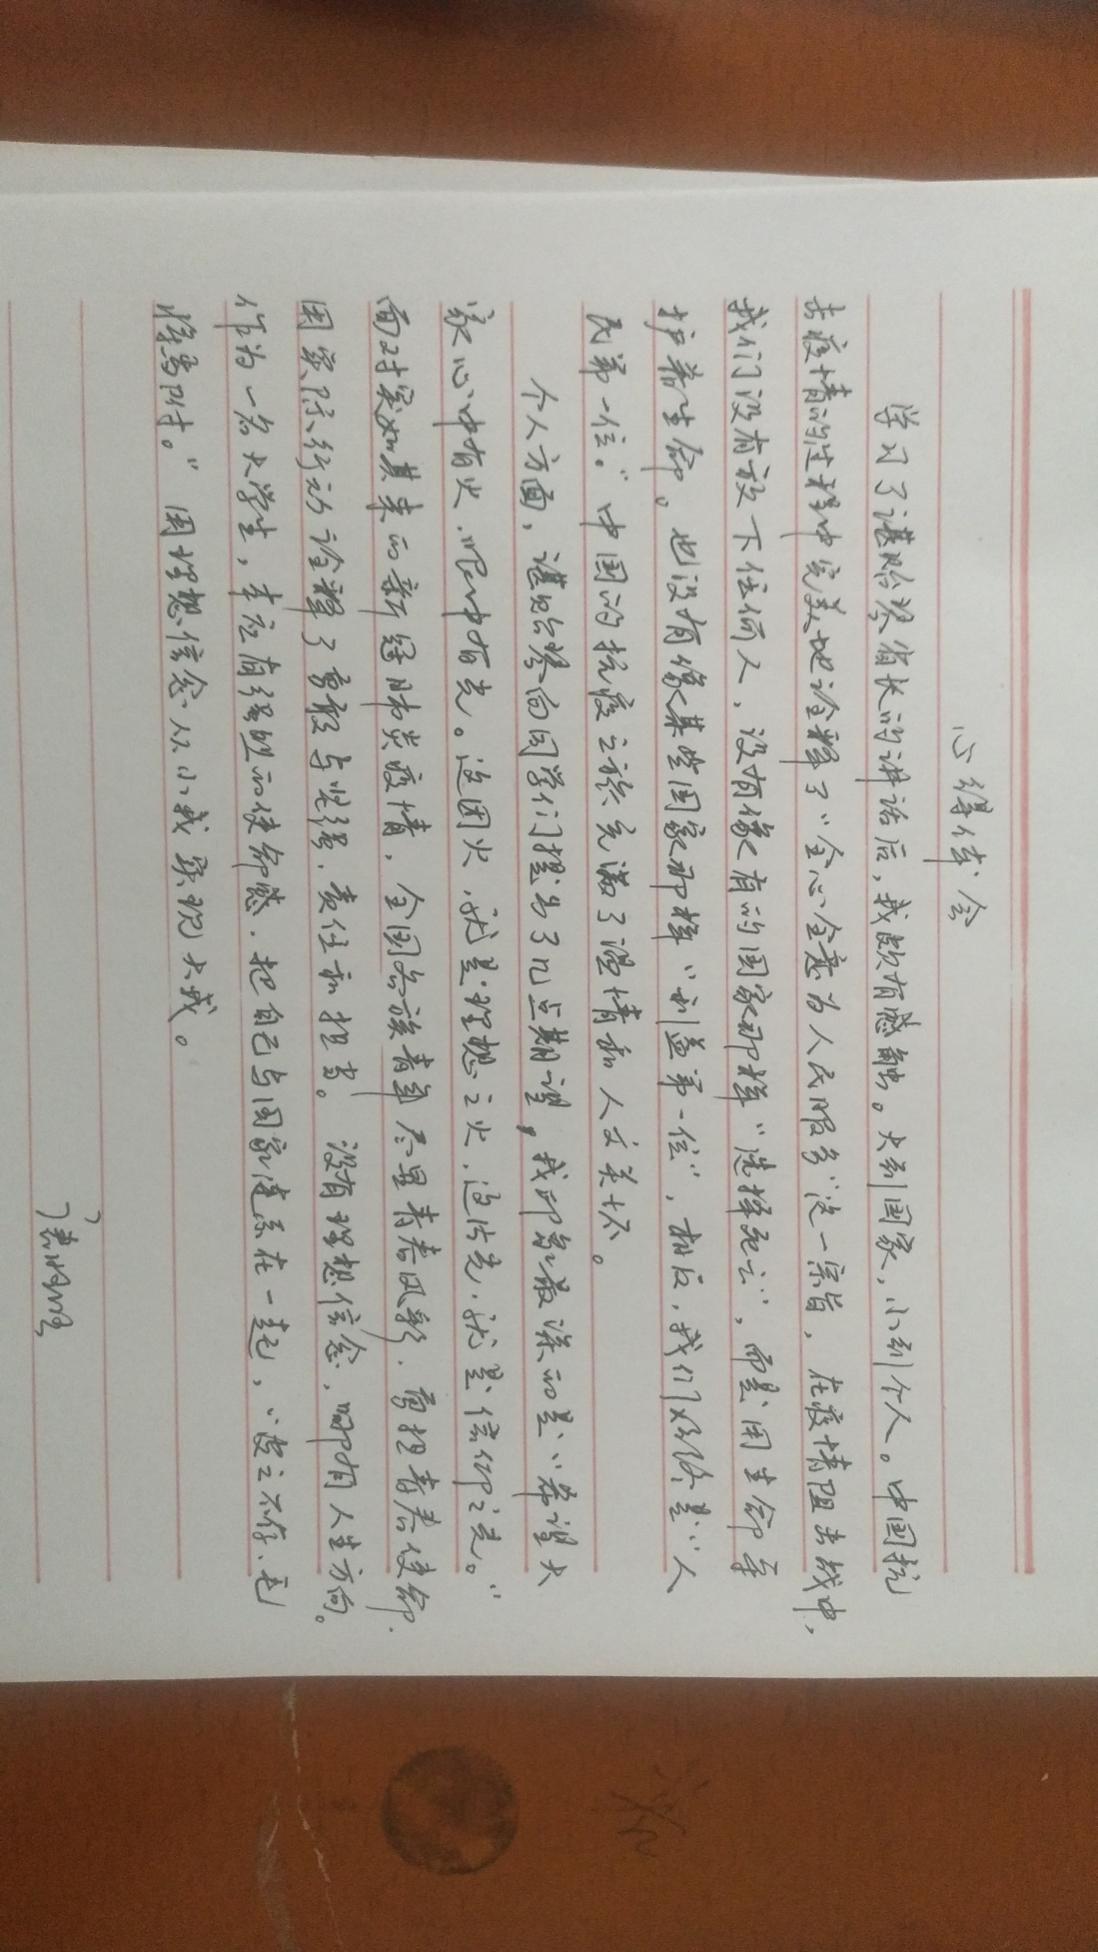 心得体会
学习了谌贻琴省长的讲话后，我颇有感触。大到国家，小到个人。中国抗
击疫情的过程中完美地诠释了“全心全意为人民服务”这一宗旨，在疫情阻击战中，
我们没有放下任何人，没有像有的国家那样“选择死亡”，而是用生命守
护着生命。也没有像某些国家那样“利益第一位”，相反，我们始终是“人
民第一位。”中国的抗疫之旅充满了温情和人文关怀。
个人方面，谌贻琴向同学们提出了几点期望，我印象最深的是“希望大
家心中有火，眼中有光。这团火，就是理想之火，这片光，就是信仰之光。”
面对突如其来的新冠肺炎疫情，全国各族青年尽显青春风彩，肩担青春使命，
用实际行动诠释了勇敢与坚强，责任和担当。没有理想信念，哪有人生方向。
作为一名大学生，本应有强烈的使命感，把自己与国家连系在一起，“皮之不存，毛
将焉附。”用理想信念从小我实现大我。